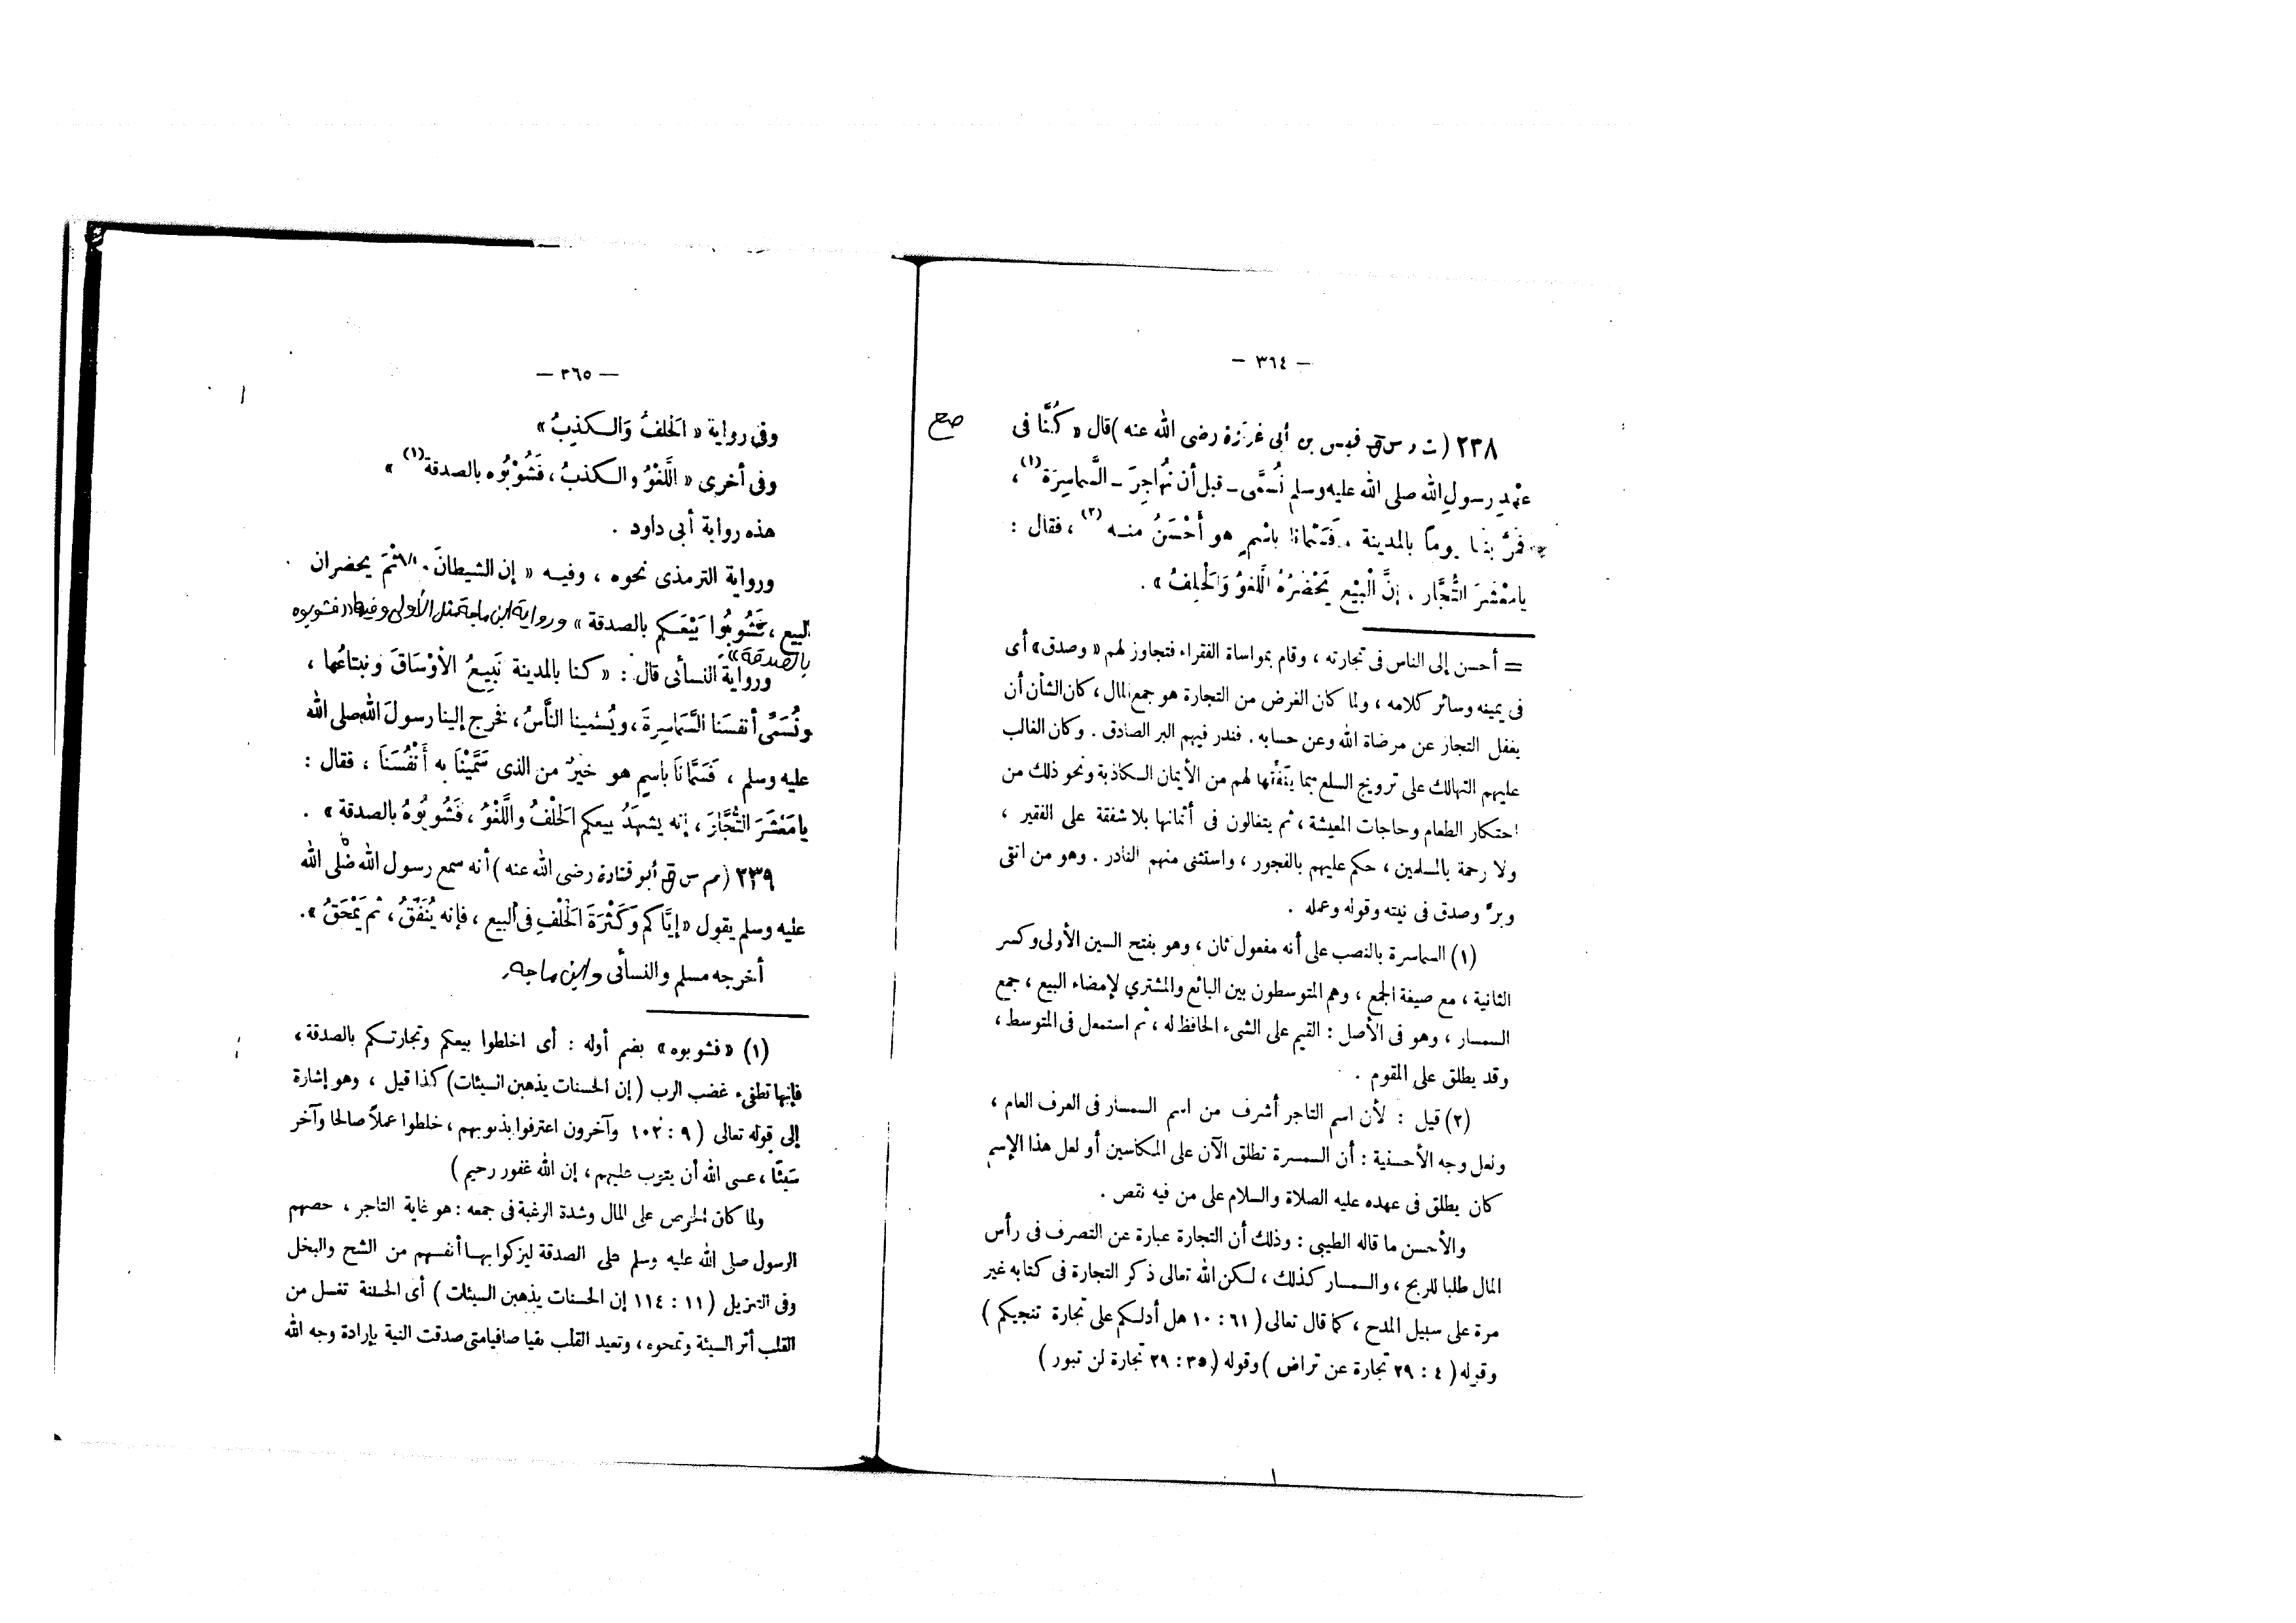 — ٣٦٤ —
صح
٢٣٨ ( ت د س ق قيس بن أبى غرزة رضى الله عنه ) قال « كُنَّا فى
عهدِ رسولِ الله صلى الله عليه وسلم نُسمَّى – قبل أن نُهاجِرَ – السَّماسِرَة (١) ،
فمرَّ بنا يوماً بالمدينة ، فَسَمَّانا باسْمٍ هو أَحْسَنُ منه (٢) ، فقال :
يا مَعْشَرَ التُّجَّار ، إنَّ الْبَيْع يَحْضُرُهُ اللَّغوُ وَالْحلِفُ » .
= أحسن إلى الناس فى تجارته ، وقام بمواساة الفقراء فتجاوز لهم « وصدق » أى
فى يمينه وسائر كلامه ، ولما كان الغرض من التجارة هو جمع المال ، كان الشأن أن
يغفل التجار عن مرضاة الله وعن حسابه . فندر فيهم البر الصادق . وكان الغالب
عليهم التهالك على ترويج السلع بما يتفق لهم من الأيمان الكاذبة ونحو ذلك من
احتكار الطعام وحاجات المعيشة ، ثم يتغالون فى أثمانها بلا شفقة على الفقير ،
ولا رحمة بالمسلمين ، حكم عليهم بالفجور ، واستثنى منهم النادر . وهو من اتقى
وبرَّ وصدق فى نيته وقوله وعمله .
(١) السماسرة بالنصب على أنه مفعول ثان ، وهو بفتح السين الأولى وكسر
الثانية ، مع صيغة الجمع ، وهم المتوسطون بين البائع والمشتري لإمضاء البيع ، جمع
السمسار ، وهو فى الأصل : القيم على الشىء الحافظ له ، ثم استعمل فى المتوسط ،
وقد يطلق على المقوم .
(٢) قيل : لأن اسم التاجر أشرف من اسم السمسار فى العرف العام ،
ولعل وجه الأحسنية : أن السمسرة تطلق الآن على المكاسين أو لعل هذا الإسم
كان يطلق فى عهده عليه الصلاة والسلام على من فيه نقص .
والأحسن ما قاله الطيبى : وذلك أن التجارة عبارة عن التصرف فى رأس
المال طلبا للربح ، والسمسار كذلك ، لكن الله تعالى ذكر التجارة فى كتابه غير
مرة على سبيل المدح ، كما قال تعالى ( ٦١ : ١٠ هل أدلكم على تجارة تنجيكم )
وقوله ( ٤ : ٢٩ تجارة عن تراض ) وقوله ( ٣٥ : ٢٩ تجارة لن تبور )
— ٣٦٥ —
وفى رواية « الحَلفُ وَالكذِبُ »
وفى أخرى « اللَّغْوُ والكذبُ ، فَشُوْبُوه بالصدقة (١) »
هذه رواية أبى داود .
ورواية الترمذى نحوه ، وفيه « إن الشيطانَ والإثمَ يحضران
البيع ، فَشُوبُوا بَيْعَكم بالصدقة » ورواية ابن ماجة مثل الأولى وفيها « فشوبوه
بالصدقة »
ورواية النسائى قال : « كنا بالمدينة نَبِيعُ الأَوْسَاقَ ونبتاعُها ،
ونُسَمِّى أنفسَنا السَّمَاسِرةَ ، ويُسَمِّينا النَّاسُ ، فخرج إلينا رسولَ الله صلى الله
عليه وسلم ، فَسَمَّانَا باسمٍ هو خيرٌ من الذى سَمَّيْنَا به أَنْفُسَنَا ، فقال :
يا مَعْشَرَ التُّجَّارَ ، إنه يشهَدُ بيعكم الحَلْفُ واللَّغْوُ ، فَشُوبُوهُ بالصدقة » .
٢٣٩ ( م س ق أبو قتادة رضى الله عنه ) أنه سمع رسول الله صلى الله
عليه وسلم يقول « إيَّاكم وَكَثْرَةَ الحَلْفِ فى البيع ، فإنه يُنَفِّقُ ، ثم يَمْحَقُ » .
أخرجه مسلم والنسائى وابن ماجه .
(١) « فشوبوه » بضم أوله : أى اخلطوا بيعكم وتجارتكم بالصدقة ،
فإنها تطفىء غضب الرب ( إن الحسنات يذهبن السيئات ) كذا قيل ، وهو إشارة
إلى قوله تعالى ( ٩ : ١٠٢ وآخرون اعترفوا بذنوبهم ، خلطوا عملاً صالحا وآخر
سَيئًا ، عسى الله أن يتوب عليهم ، إن الله غفور رحيم )
ولما كان الحرص على المال وشدة الرغبة فى جمعه : هو غاية التاجر ، حضهم
الرسول صلى الله عليه وسلم على الصدقة ليزكوا بها أنفسهم من الشح والبخل
وفى التنزيل ( ١١ : ١١٤ إن الحسنات يذهبن السيئات ) أى الحسنة تغسل من
القلب أثر السيئة وتمحوه ، وتعيد القلب نقيا صافيا متى صدقت النية بإرادة وجه الله